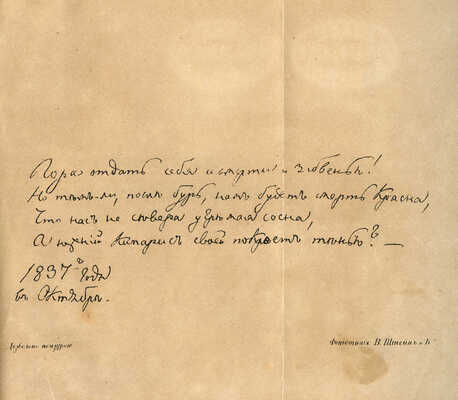 Пора отдать себя и смерти и забвенью!
Но тѣмъ-ли, послѣ бурь, намъ будетъ смерть красна,
Что насъ не Сѣвера угрюмая сосна,
А южный Кипарисъ своей покроетъ тѣнью? —
1837 года
въ Октябрѣ.
Дозволено цензурою
Фототипія В. Штейнъ